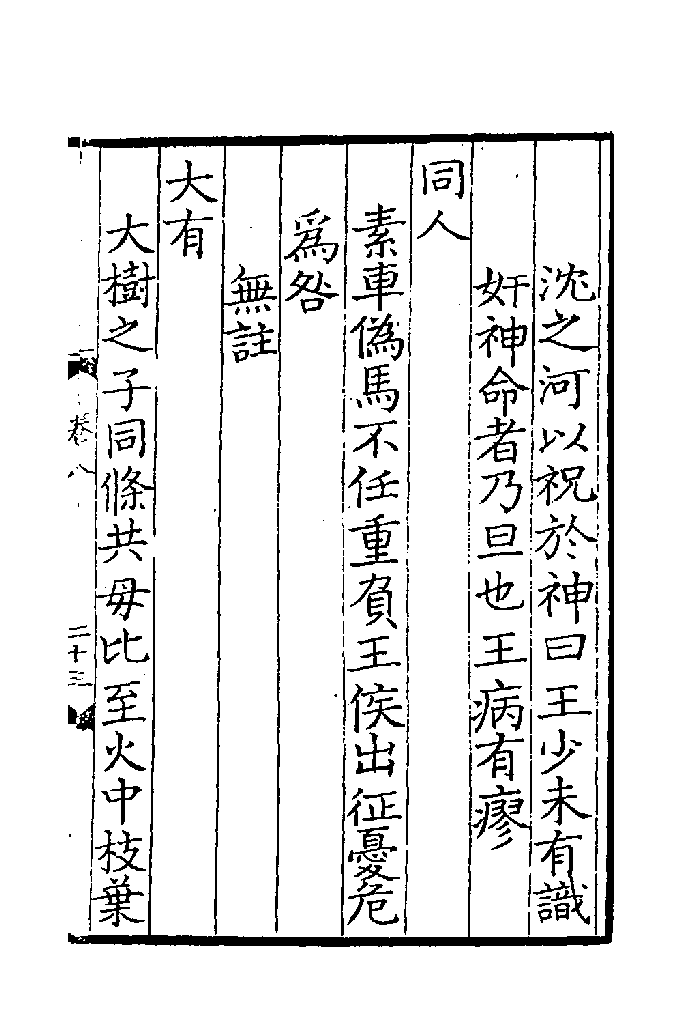 沈之河以祝於神曰王少未有識
奸神命者乃旦也王病有瘳
同人
素車僞馬不任重負王侯出征憂危
爲咎
無註
大有
大樹之子同條共母比至火中枝葉
卷八
二十三